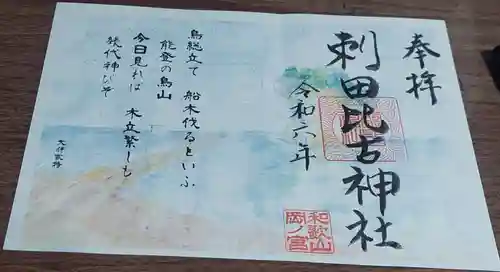 奉拝
刺田比古神社
令和六年
和歌山
岡ノ宮
鳥総立て 船木伐るといふ
能登の島山
今日見れば 木立繁しも
幾代神びそ
大伴家持